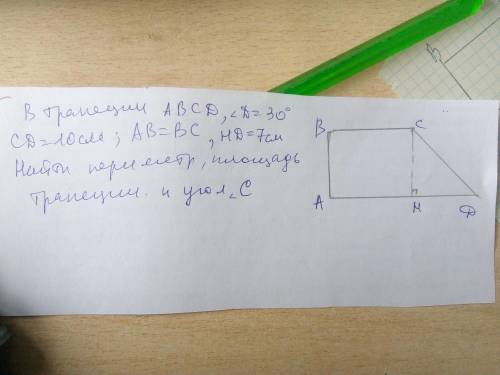 В трапеции ABCD, ∠D=30°
CD=10см; AB=BC, HD=7см
Найти периметр, площадь
трапеции и угол ∠C
B
C
A
H
D